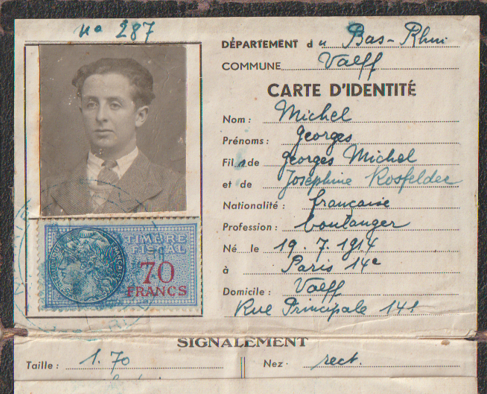 no 287
DÉPARTEMENT du Bas-Rhin
COMMUNE Valff
CARTE D'IDENTITÉ
Nom : Michel
Prénoms : Georges
Fils de Georges Michel
et de Joséphine Rosfelder
Nationalité : française
Profession : boulanger
Né le 19.7.1914
à Paris 14e
Domicile : Valff
Rue Principale 141
TIMBRE
FISCAL
70
FRANCS
SIGNALEMENT
Taille : 1.70 Nez : rect.